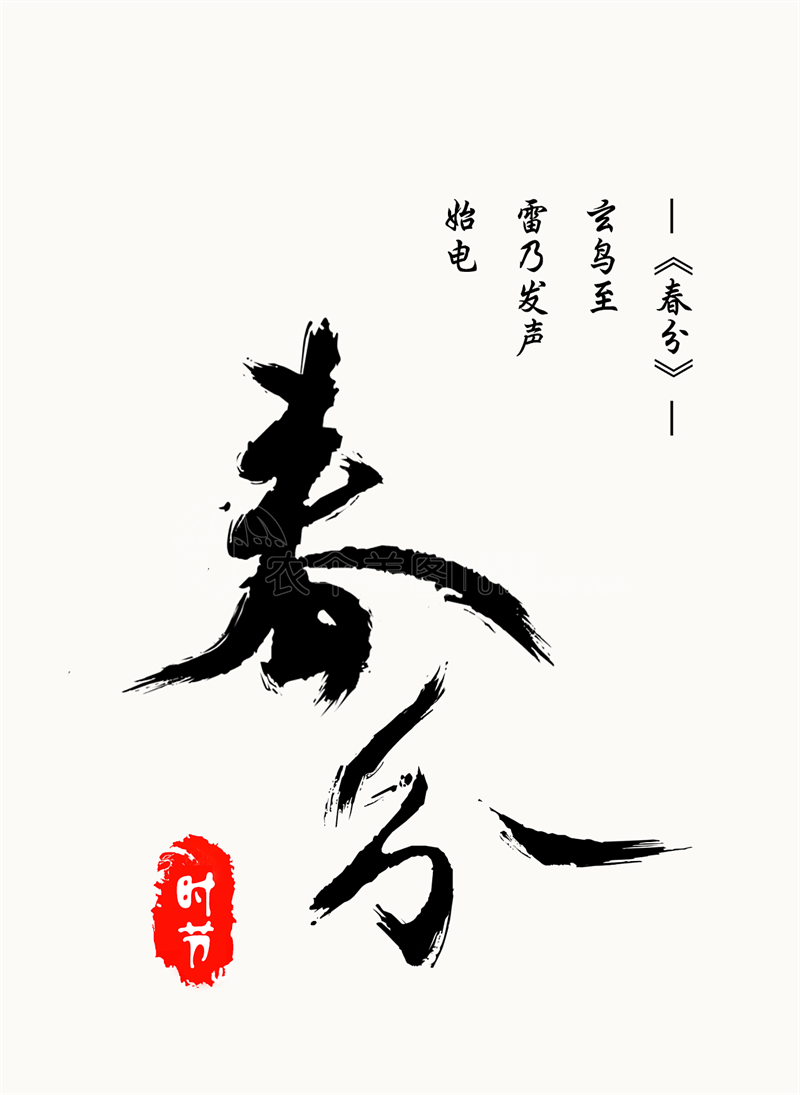 —《春分》—
玄鸟至
雷乃发声
始电
春分
时节